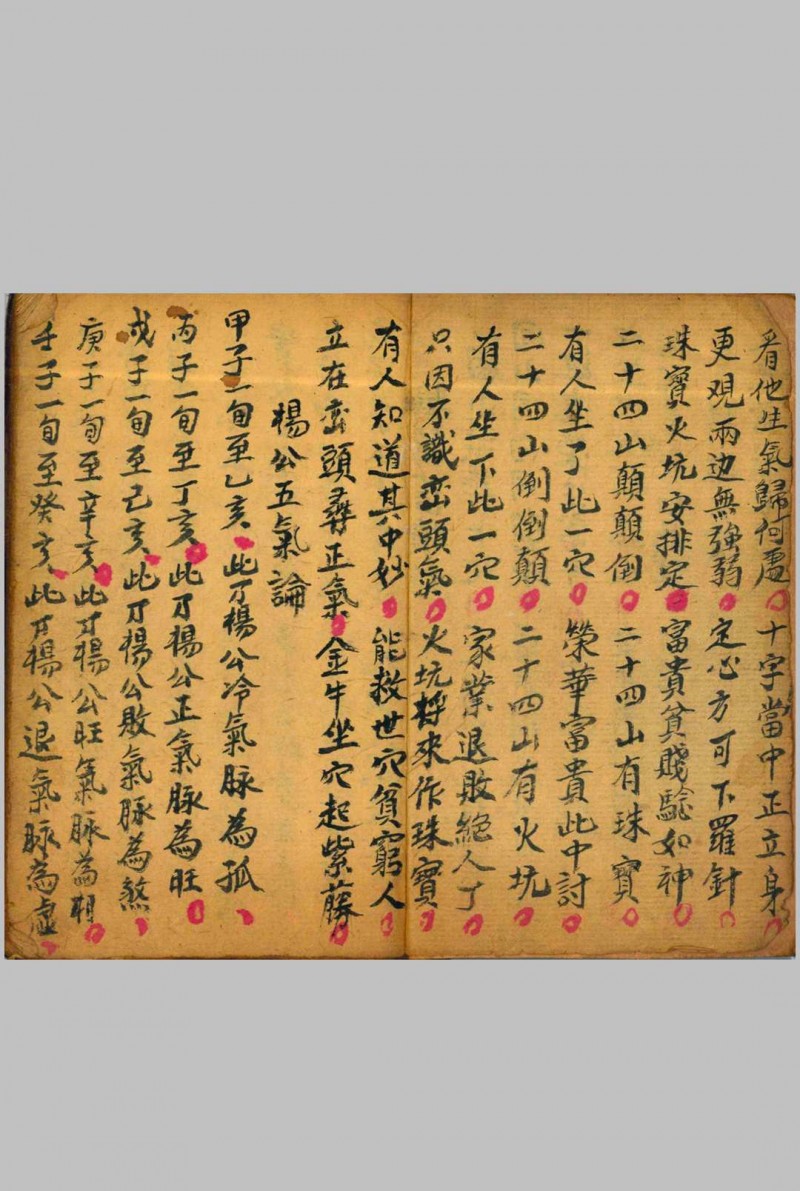 看他生氣歸何處十字當中正立身
更观兩边無強弱定心方可下羅針
珠寶火坑安排定富貴貧賤驗如神
二十四山顛顛倒二十四山有珠寶
有人坐了此一穴榮華富貴此中討
二十四山倒倒顛二十四山有火坑
有人坐下此一穴家業退敗絕人丁
只因不識巒頭氣火坑將來作珠寶
有人知道其中妙能救世穴貧窮人
立在巒頭尋正氣金牛坐穴起紫藤
楊公五氣論
甲子一旬至乙亥此乃楊公冷氣脉為孤
丙子一旬至丁亥此乃楊公正氣脉為旺
戊子一旬至己亥此乃楊公敗氣脉為煞
庚子一旬至辛亥此乃楊公旺氣脉為相
壬子一旬至癸亥此乃楊公退氣脉為虛